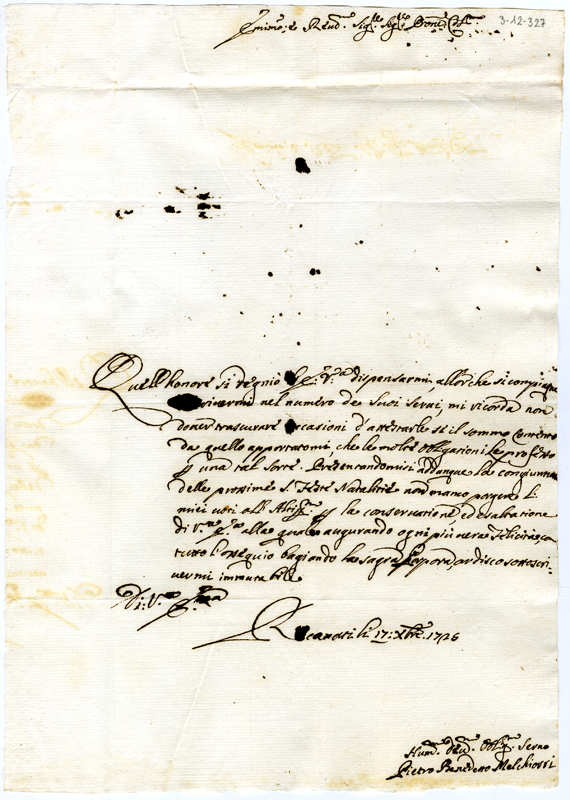 3-12-327
Em̃mo, e Reud.mo Sig.re Sig.re Proñe Col.mo
Quell'honore si degniò l'E. V.ra dispensarmi, allor che si compiaque
nel numero de Suoi Serui, mi ricorda non
douer trascurare occasioni d'attestarle sì il sommo Contento
da quello apportatomi, che le molte Obligazioni le professo
p una tal Sorte. Presentandomisi adunque la congiuntura
delle prossime S. Feste Natalitie non manco porgere li
miei uoti all'Altiss.mo p la conseruatione, ed esaltatione
di V.ra E.za alla quale augurando ogni più uera Felicità, co
tutto l'osequio bagiando la Sagra Porpora ardisco sottoscri-
uermi immutabile
Di V.ra Em̃za
Recanati li 17: Xbre 1726
Hum.mo Deu.mo Obl.mo Seruo
Pietro Benedetto Melchiorri